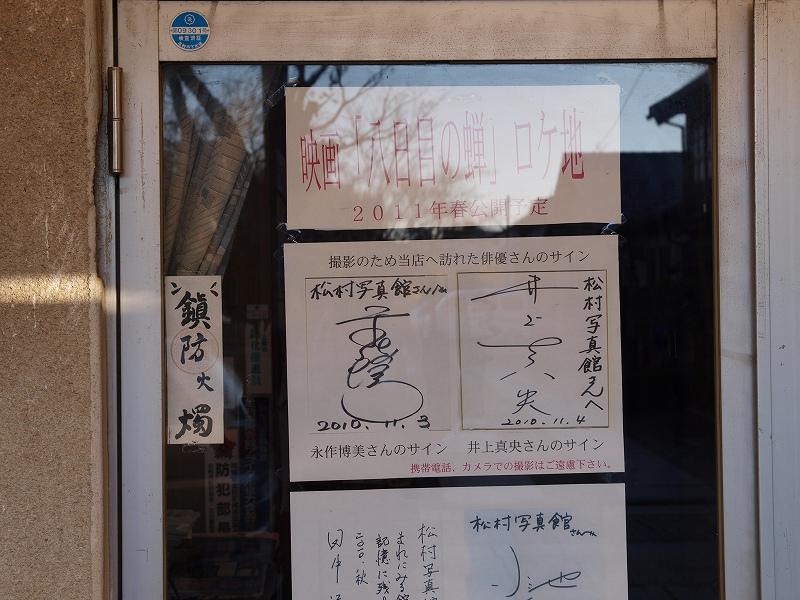 映画「八日目の蝉」ロケ地
2011年春公開予定
撮影のため当店へ訪れた俳優さんのサイン
松村写真館さん江
2010.11.3
松村写真館さんへ
井上真央
2010.11.4
永作博美さんのサイン
井上真央さんのサイン
携帯電話、カメラでの撮影はご遠慮下さい。
鎭防火燭
防犯部
松村写真館
さん江
松村写真
まれにみる館
記憶に残
二〇一〇.秋
田中